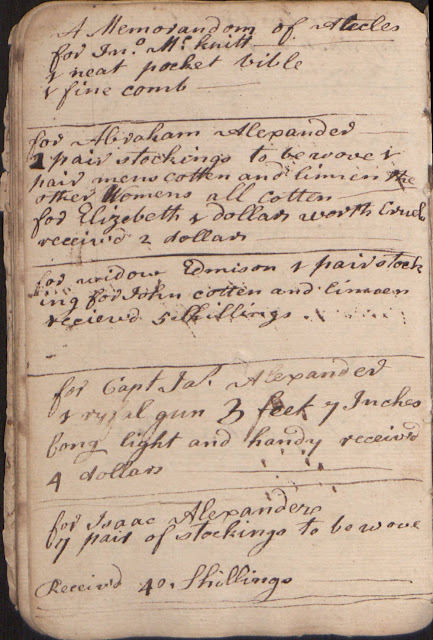 A Memorandom of Atecles
for Jno. Mc.knitt
1 neat pocket bible
1 fine comb
for Abraham Alexander
2 pair stockings to be wove 1
pair mens cotten and linnen the
other Womens all cotten
for Elizebeth 1 dollar worth Cruel
receivd 2 dollars
for widow Edmison 1 pair stock
ing for John cotten and linnen
recieved 5 shillings
for Capt Jas. Alexander
1 ryfel gun 3 feet 7 Inches
long light and handy receivd
4 dollars
for Isaac Alexander
7 pair of stockings to be wove
Receivd 40, Shillings